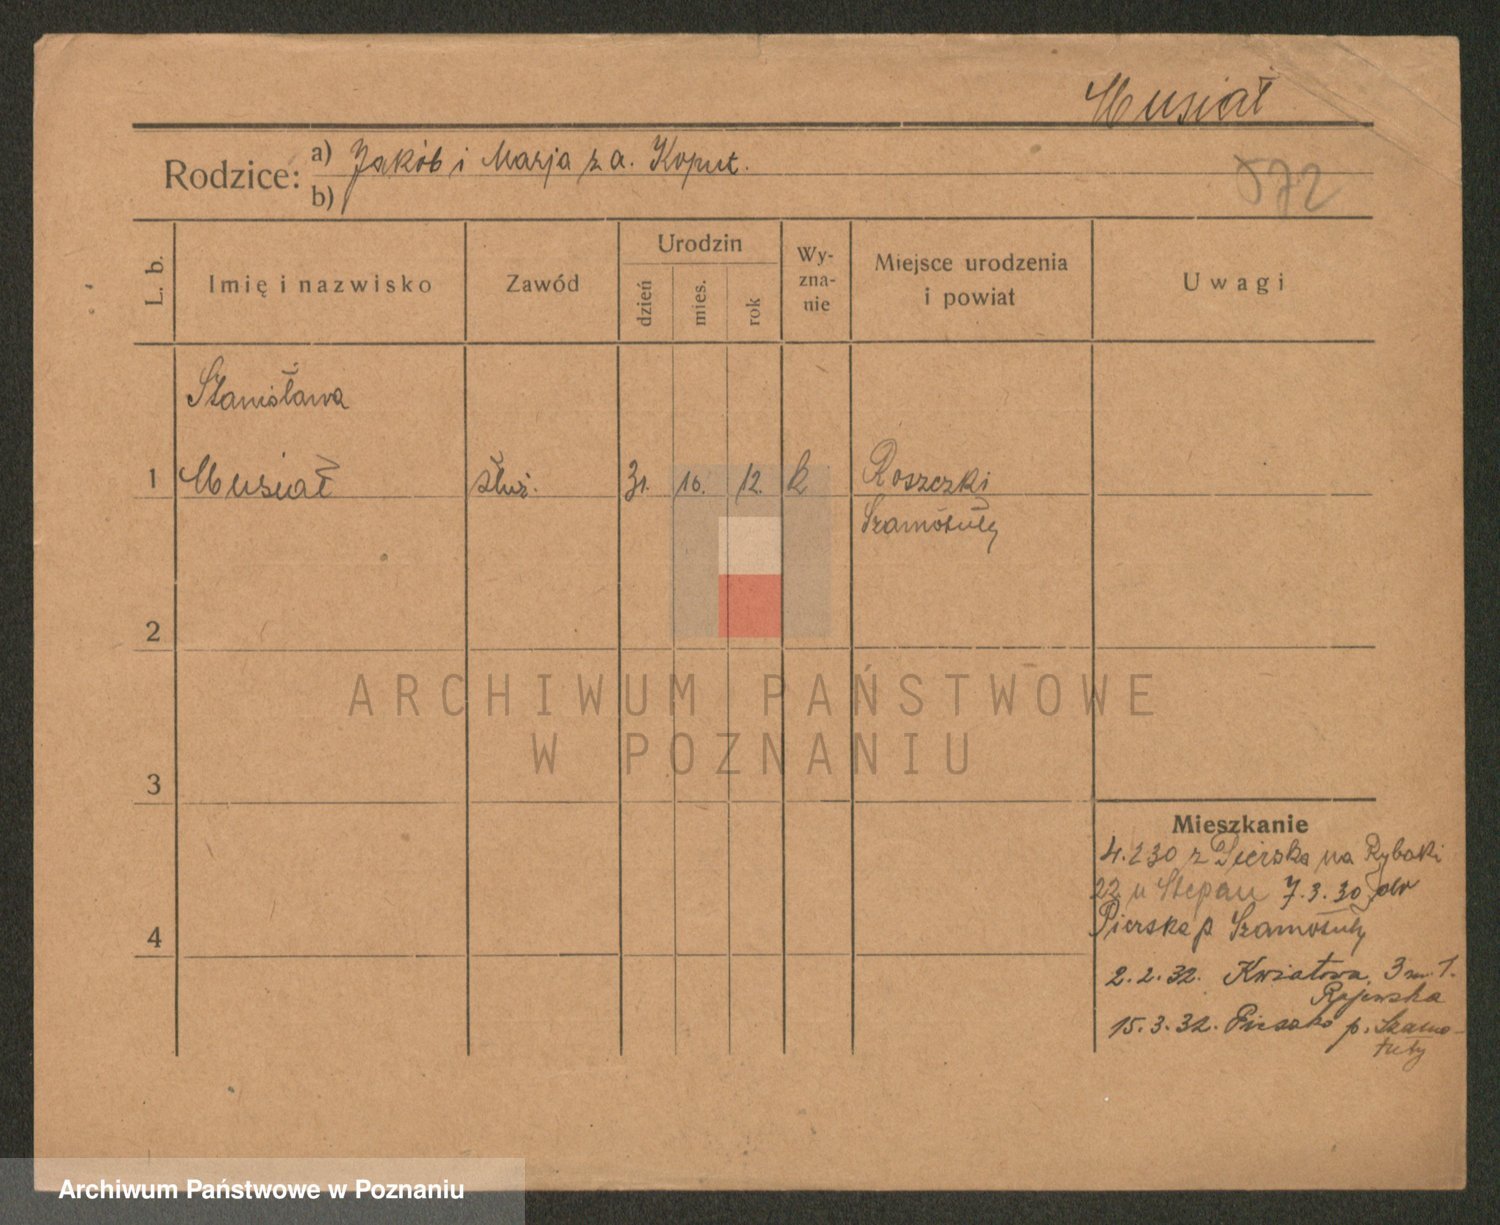 Musiał
Rodzice: a) Jakób i Marja z d. Koput.
b)
572
L. b.
Imię i nazwisko
Zawód
Urodzin
dzień
mies.
rok
Wy-
zna-
nie
Miejsce urodzenia
i powiat
Uwagi
Stanisława
1 Musiał służ. 31. 10. 12. k Roszczki
Szamotuły
2
3
4
Mieszkanie
4.2 30 z Pierska na Rybaki
22 u Stepan 7.3.30 do
Pierska p Szamotuły
2.2.32. Kwiatowa 3 m 1.
Rajewska
15.3.32. p. Szamo-
tuły
ARCHIWUM PAŃSTWOWE
W POZNANIU
Archiwum Państwowe w Poznaniu